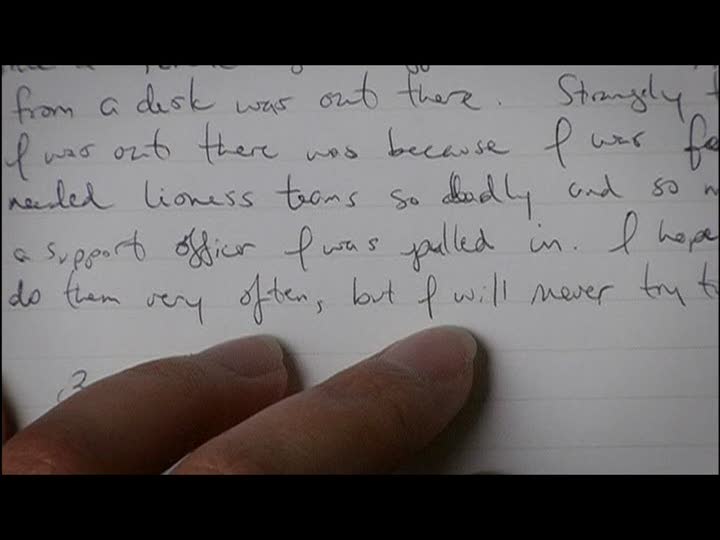 from a desk was out there. Strangely
I was out there was because I was
needed lioness teams so badly and so
a support officer I was pulled in. I hope
do them very often, but I will never try